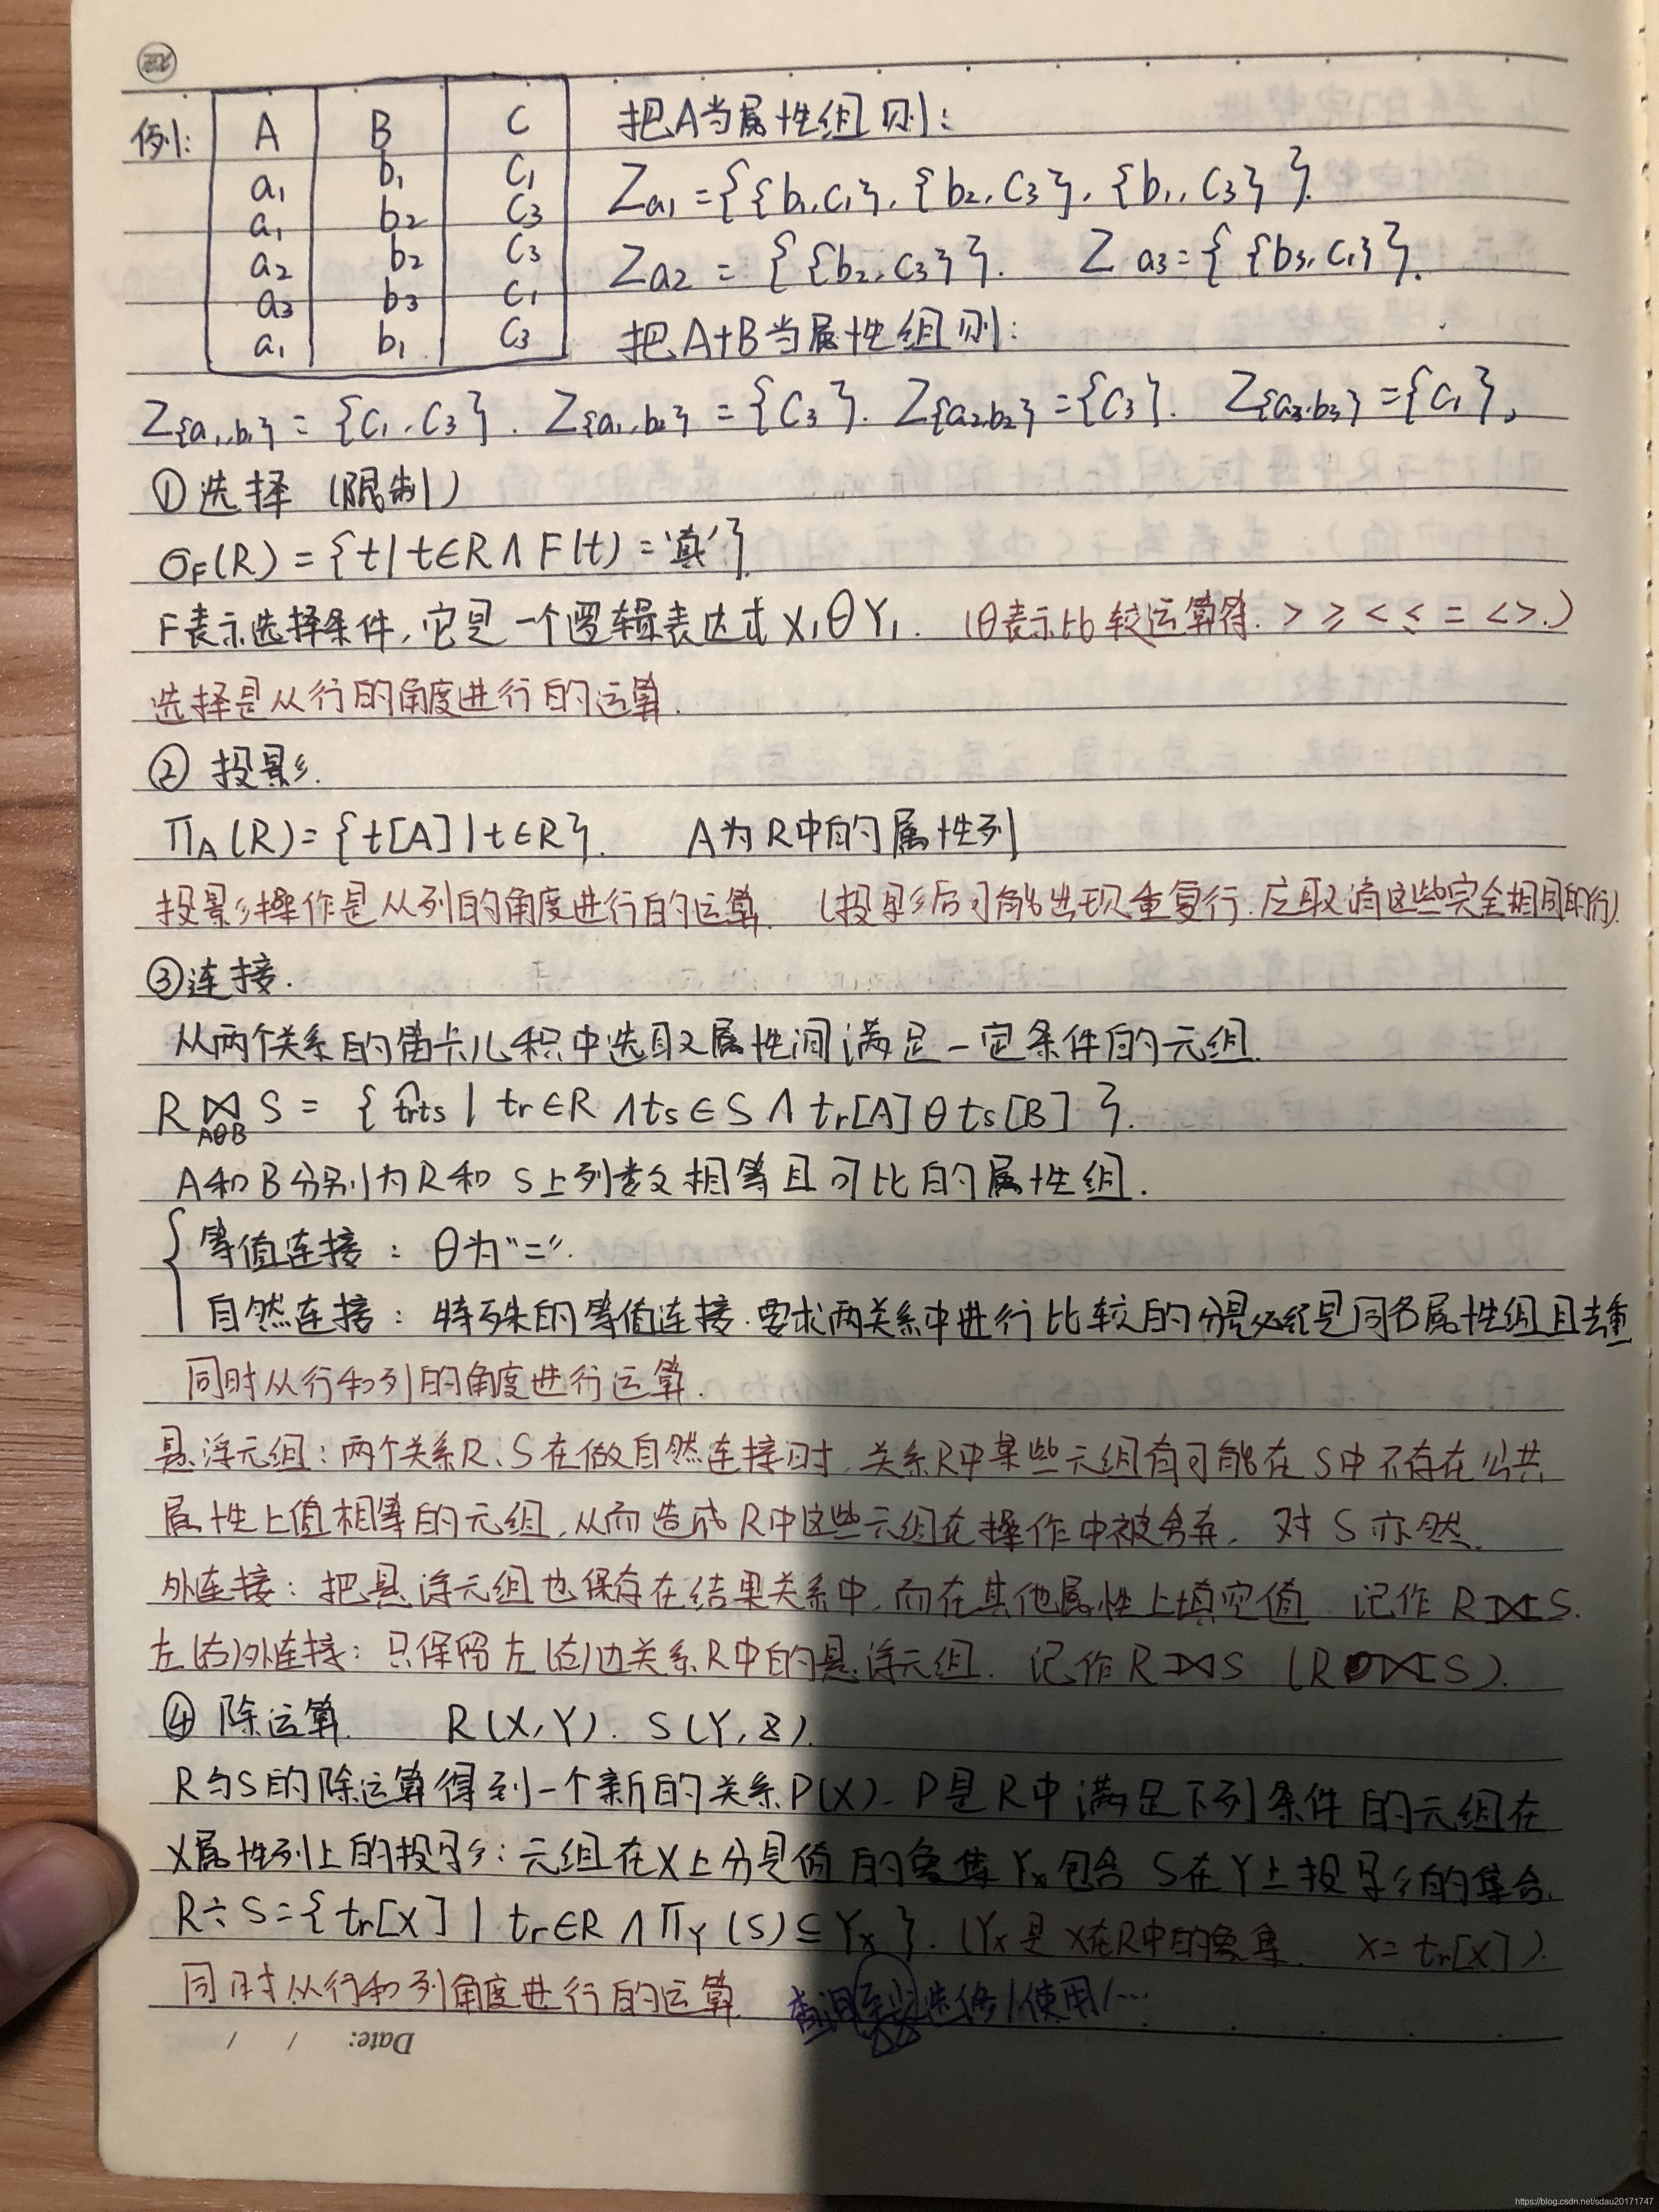 例: A B C 把A当属性组则:
a₁ b₁ C₁ Z a₁ = {{b₁,C₁}, {b₂,C₃}, {b₁,C₃}}.
a₁ b₂ C₃
a₂ b₂ C₃ Z a₂ = {{b₂,C₃}}. Z a₃ = {{b₃,C₁}}.
a₃ b₃ C₁
a₁ b₁ C₃ 把A+B当属性组则:
Z{a₁,b₁} = {C₁,C₃}. Z{a₁,b₂} = {C₃}. Z{a₂,b₂} = {C₃}. Z{a₃,b₃} = {C₁}。
①选择(限制)
σF(R) = {t | t∈R∧F(t) = '真'}
F表示选择条件,它是一个逻辑表达式X₁θY₁. (θ表示比较运算符. > ≥ < ≤ = <>.)
选择是从行的角度进行的运算.
② 投影.
ΠA(R) = {t[A] | t∈R}. A为R中的属性列
投影操作是从列的角度进行的运算. (投影后可能出现重复行.应取消这些完全相同的行).
③连接.
从两个关系的笛卡儿积中选取属性间满足一定条件的元组.
R ⋈ S = {trts | tr∈R∧ts∈S∧tr[A]θts[B]}.
AθB
A和B分别为R和S上列数相等且可比的属性组.
等值连接: θ为"=".
自然连接: 特殊的等值连接.要求两关系中进行比较的分量必须是同名属性组且去重
同时从行和列的角度进行运算.
悬浮元组:两个关系R、S在做自然连接时,关系R中某些元组有可能在S中不存在公共
属性上值相等的元组,从而造成R中这些元组在操作中被舍弃. 对S亦然.
外连接:把悬浮元组也保存在结果关系中,而在其他属性上填空值. 记作R⟗S.
左(右)外连接:只保留左(右)边关系R中的悬浮元组. 记作R⟕S (R⟖S).
④ 除运算. R(X,Y). S(Y,Z).
R与S的除运算得到一个新的关系P(X). P是R中满足下列条件的元组在
X属性列上的投影:元组在X上分量值的象集Yx包含S在Y上投影的集合.
R÷S={tr[X] | tr∈R∧ΠY(S)⊆Yx}. (Yx是x在R中的象集. x=tr[X]).
同时从行和列角度进行的运算. 选修/使用/…
Date: / /
https://blog.csdn.net/sdau20171747